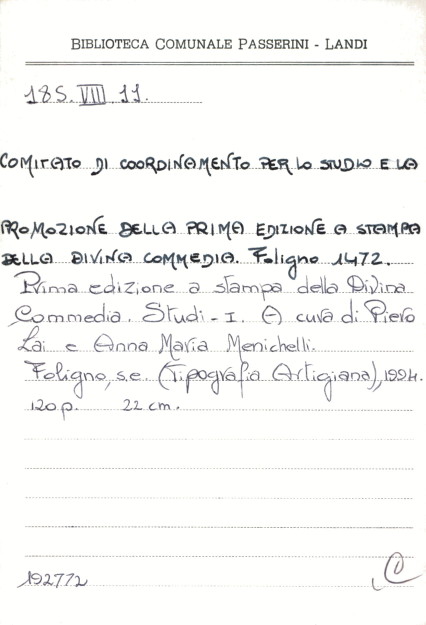 BIBLIOTECA COMUNALE PASSERINI - LANDI
185. VIII 11.
COMITATO DI COORDINAMENTO PER LO STUDIO E LA
PROMOZIONE DELLA PRIMA EDIZIONE A STAMPA
DELLA DIVINA COMMEDIA. Foligno 1472.
Prima edizione a stampa della Divina
Commedia. Studi - I. A cura di Piero
Lai e Anna Maria Menichelli.
Foligno, s.e. (Tipografia Artigiana), 1994.
120 p. 22 cm.
192772
C